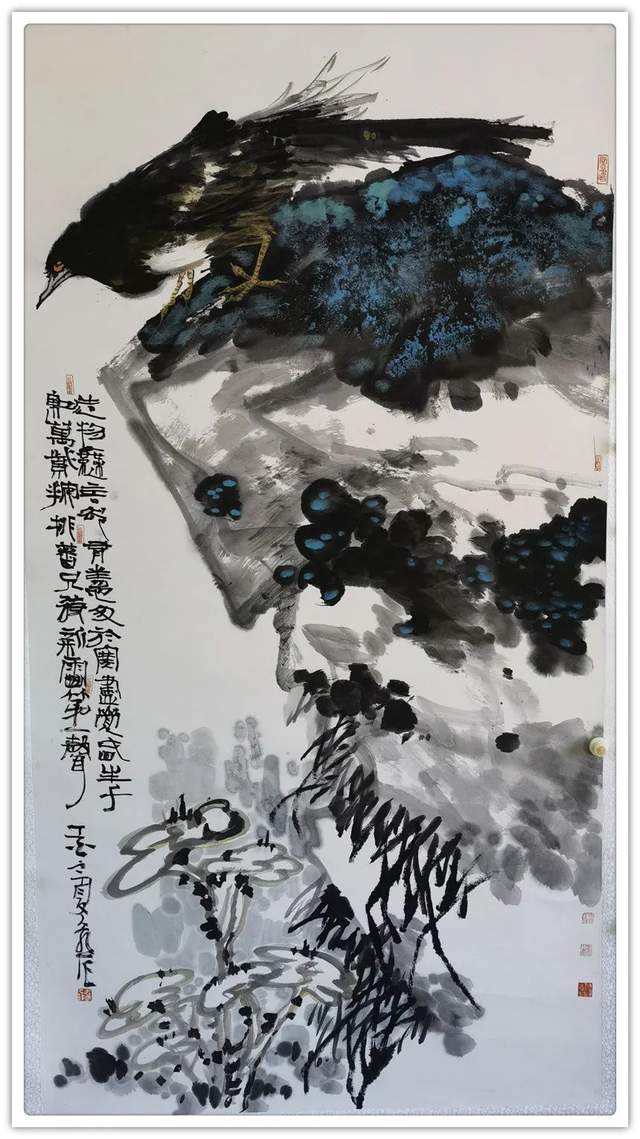 造物無言却有情每於寒盡覺春生千
紅萬紫安排着只待新雷第一聲
之夏
作